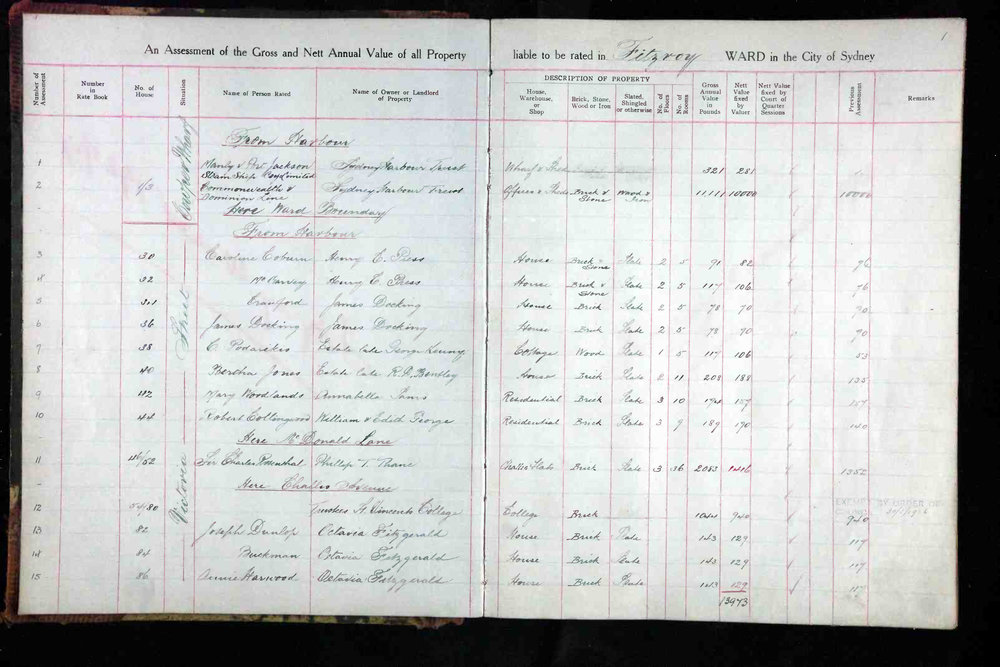 1
An Assessment of the Gross and Nett Annual Value of all Property liable to be rated in Fitzroy WARD in the City of Sydney
DESCRIPTION OF PROPERTY
Number of Assessment
Number in Rate Book
No. of House
Situation
Name of Person Rated
Name of Owner or Landlord of Property
House, Warehouse, or Shop
Brick, Stone, Wood or Iron
Slated, Shingled or otherwise
No. of Floors
No. of Rooms
Gross Annual Value in Pounds
Nett Value fixed by Valuer
Nett Value fixed by Court of Quarter Sessions
Previous Assessment
Remarks
Cowper Wharf
From Harbour
1 Manly & Port Jackson Steam Ship Coy Limited Sydney Harbour Trust Wharf & Shed 321 281
2 1/3 Commonwealth & Dominion Line Sydney Harbour Trust Offices & Sheds Brick & Stone Wood & Iron 11,111 10000 10000
Here Ward Boundary
From Harbour
Victoria Street
3 30 Caroline Coburn Henry E. Press House Brick & Stone Slate 2 5 91 82 76
4 32 McGarvey Henry E. Press House Brick & Stone Slate 2 5 117 106 76
5 34 Crawford James Docking House Brick Slate 2 5 78 70 90
6 36 James Docking James Docking House Brick Slate 2 5 78 70 90
7 38 C. Estate late George Cottage Wood Slate 1 5 117 106 53
8 40 Bertha Jones Estate late R. P. Bentley House Brick Slate 2 11 208 188 135
9 42 Mary Woodlands Annabella Residential Brick Slate 3 10 174 157 157
10 44 Robert Collingwood William & Edith George Residential Brick Slate 3 9 189 170 140
Here McDonald Lane
11 46/52 Sir Charles Rosenthal Phillip T. Thane Flats Brick Slate 3 36 2083 1352
Here Challis Avenue
12 54/80 Trustees St Vincents College College Brick 1044 940 940
EXEMPT BY ORDER OF
COUNCIL
13 82 Joseph Dunlop Octavia Fitzgerald House Brick Slate 143 129 117
14 84 Buckman Octavia Fitzgerald House Brick Slate 143 129 117
15 86 Annie Harwood Octavia Fitzgerald House Brick Slate 143 129 117
13973